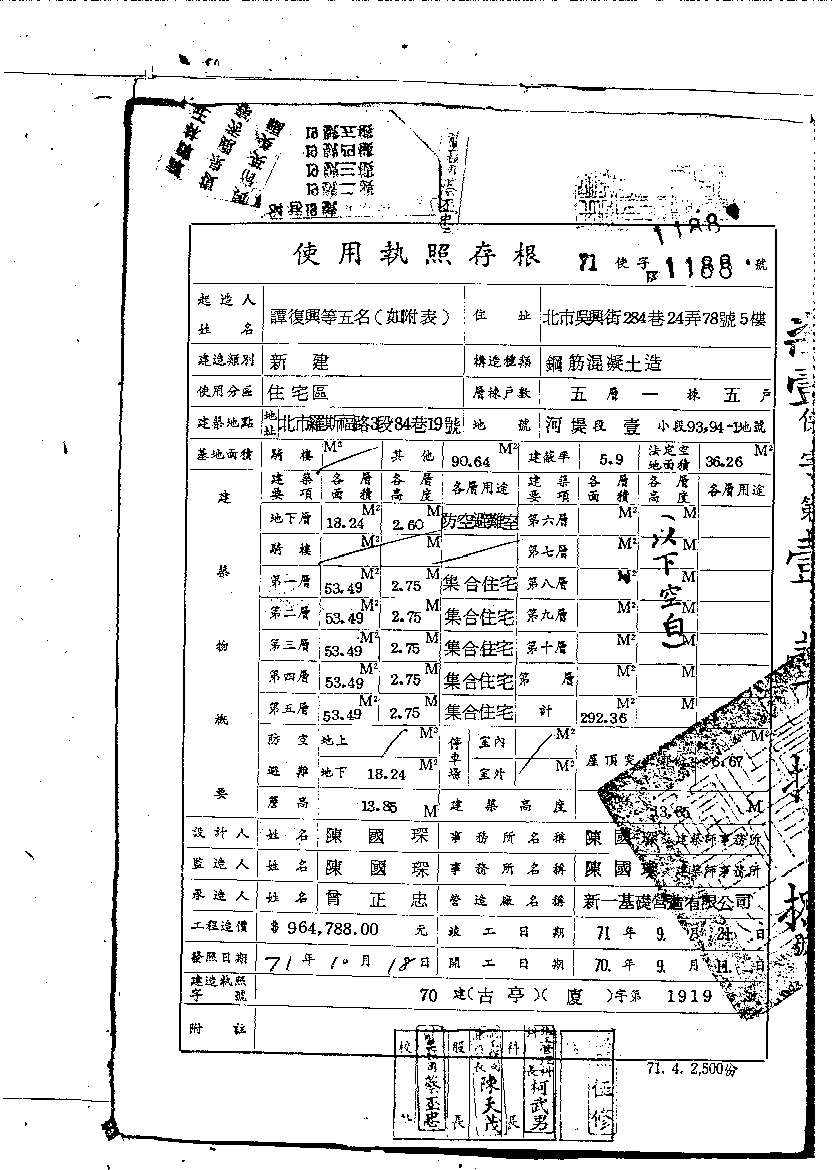 19號五樓
19號四樓
19號三樓
19號二樓
1188
使用執照存根
71 使字 1188 號
起造人姓名 譚復興等五名(如附表) 住址 北市吳興街284巷24弄78號5樓
建造類別 新建 構造種類 鋼筋混凝土造
使用分區 住宅區 層棟戶數 五層一棟五戶
建築地點 地址 北市羅斯福路3段84巷19號 地號 河堤段壹小段93.94-1地號
基地面積 騎樓 M² 其他 90.64 M² 建蔽率 5.9 法定空地面積 36.26 M²
建築物概要
建築要項 各層面積 各層高度 各層用途 建築要項 各層面積 各層高度 各層用途
地下層 18.24 M² 2.60 M 防空避難室 第六層 M² M
騎樓 M² M 第七層 M² M
第一層 53.49 M² 2.75 M 集合住宅 第八層 M² M
第二層 53.49 M² 2.75 M 集合住宅 第九層 M² M
第三層 53.49 M² 2.75 M 集合住宅 第十層 M² M
第四層 53.49 M² 2.75 M 集合住宅 第 層 M² M
第五層 53.49 M² 2.75 M 集合住宅 計 292.36 M² M
(以下空白)
防空避難 地上 M² 停車場 室內 M² 屋頂突 6.67 M²
地下 18.24 M² 室外 M²
簷高 13.85 M 建築高度 13.85 M
設計人 姓名 陳國琛 事務所名稱 陳國琛建築師事務所
監造人 姓名 陳國琛 事務所名稱 陳國琛建築師事務所
承造人 姓名 曾正忠 營造廠名稱 新一基礎營造有限公司
工程造價 $964,788.00 元 竣工日期 71年9.月24.日
發照日期 71年10月18日 開工日期 70.年9.月11.日
建造執照字號 70 建(古亭)(廈)字第 1919 號
附註
71.4.2,500份
蔡丕忠
股長 陳天茂
科長 柯武男
征修